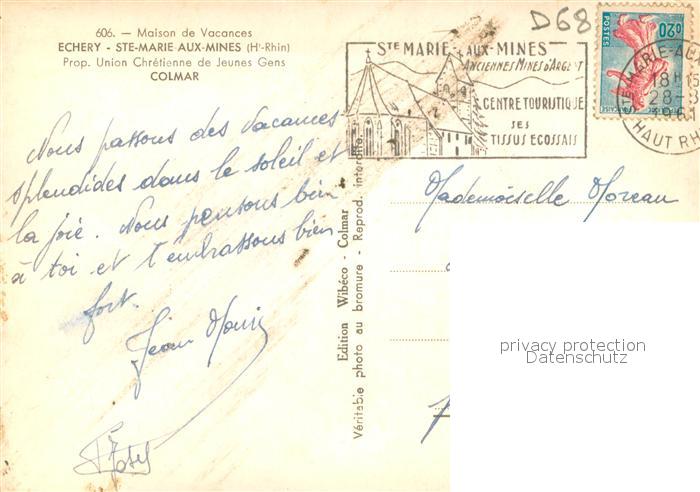 606. — Maison de Vacances
ECHERY - STE-MARIE-AUX-MINES (Ht-Rhin)
Prop. Union Chrétienne de Jeunes Gens
COLMAR
D68
STE MARIE-AUX-MINES
ANCIENNES MINES D'ARGENT
CENTRE TOURISTIQUE
SES
TISSUS ECOSSAIS
0,20
POSTES
FRANÇAISE
STE MARIE-AUX
18H
28-
1961
HAUT RH
Nous passons des vacances
splendides dans le soleil et
la joie. Nous pensons bien
à toi et t'embrassons bien
fort.
Jean
Mademoiselle Moreau
Edition Wibéco - Colmar
Véritable photo au bromure - Reprod. interdite
privacy protection
Datenschutz